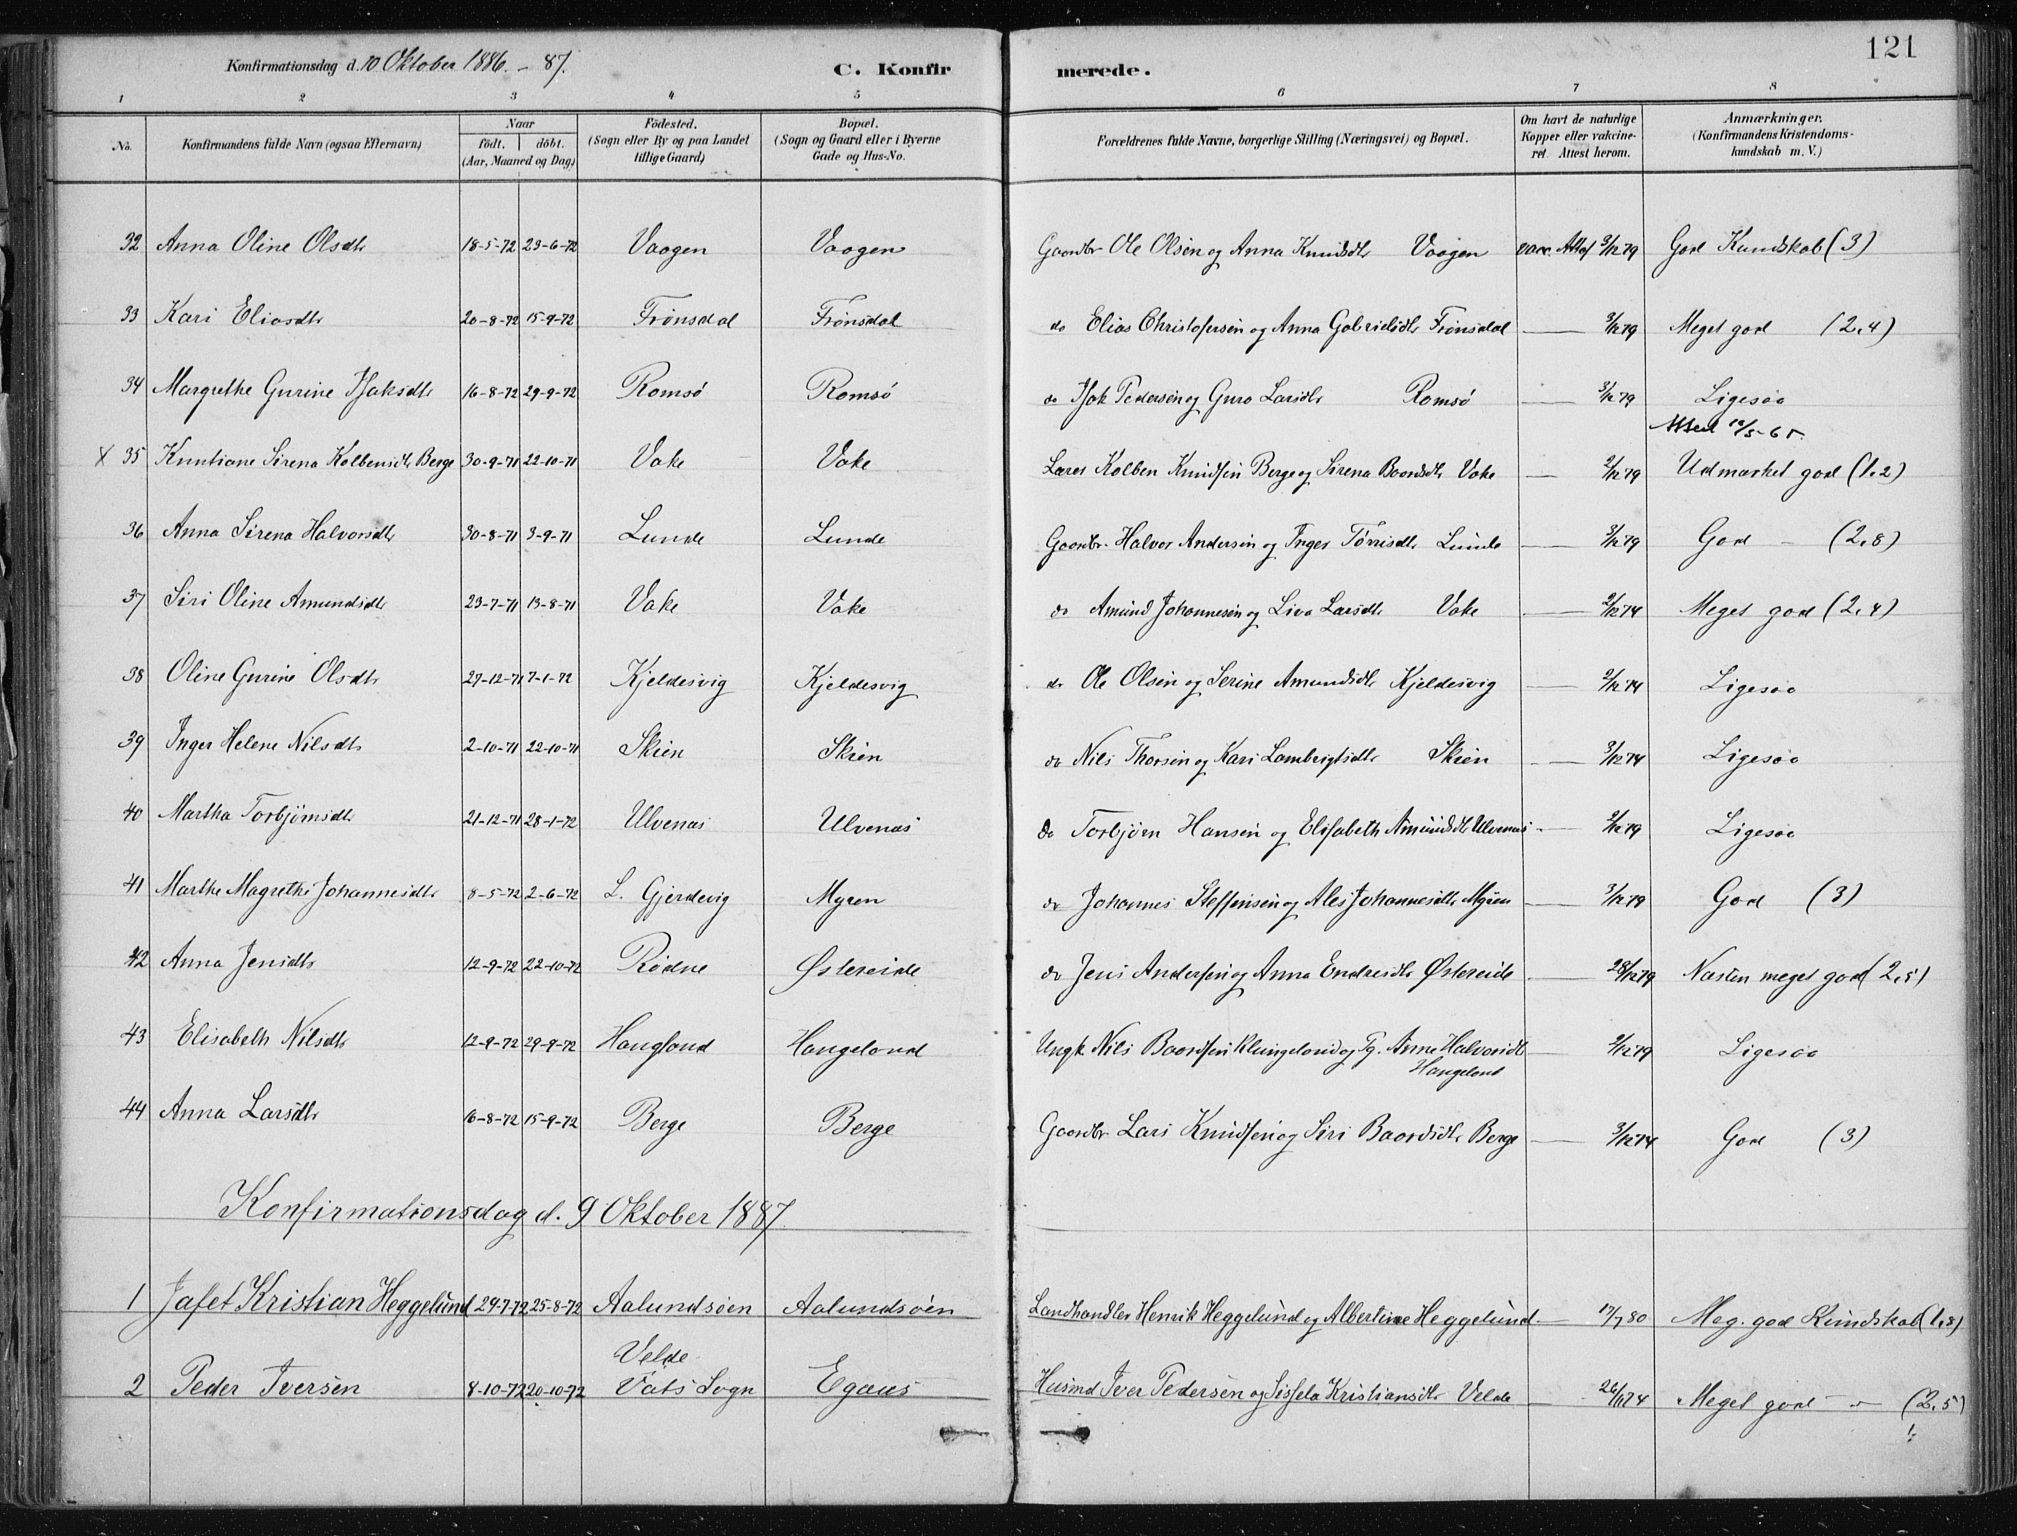 Konfirmationsdag d. 10 Oktober 1886. - 87.
C. Konfir merede.
121
1 2 3 4 5 6 7 8
No. Konfirmandens fulde Navn (ogsaa Efternavn) Naar født. døbt. (Aar, Maaned og Dag) Födested. (Sogn eller By og paa Landet tillige Gaard) Bopæl. (Sogn og Gaard eller i Byerne Gade og Hus-No. Forældrenes fulde Navne, borgerlige Stilling (Næringsvei) og Bopæl. Om havt de naturlige Kopper eller vakcineret. Attest herom. Anmærkninger. (Konfirmandens Kristendomskundskab m. V.)
32 Anna Oline Olsdtr 18-5-72 23-6-72 Vaagen Vaagen Gaardbr. Ole Olsen og Anna Knudsdtr Vaagen vacc. Attest 3/12 79 God Kundskab (3)
33 Kari Eliasdtr 20-8-72 15-9-72 Frønsdal Frønsdal do Elias Christofersen og Anna Gabrielsdtr Frønsdal — 3/12 79 Meget god (2,4)
34 Margrethe Gurine Isaksdtr 16-8-72 29-9-72 Romsø Romsø do Isak Pedersen og Guro Larsdtr Romsø — 3/12 79 Ligesaa
Attest 10/5-65.
X 35 Knutiane Sirena Kolbensdtr Berge 30-9-71 22-10-71 Vake Vake Lærer Kolben Knudsen Berge og Sirena Baardsdtr Vake — 2/12 79 Udmærket god (1,2)
36 Anna Sirena Halvorsdtr 30-8-71 3-9-71 Lunde Lunde Gaardbr. Halvor Andersen og Inger Tørrisdtr Lunde — 3/12 79 God - (2,8)
37 Siri Oline Amundsdtr 23-7-71 13-8-71 Vake Vake do Amund Johannesen og Liva Larsdtr Vake — 2/12 74 Meget god (2,4)
38 Oline Gurine Olsdtr 27-12-71 7-1-72 Kjeldesvig Kjeldesvig do Ole Olsen og Serine Amundsdtr Kjeldesvig — 2/12 74 Ligesaa
39 Inger Helene Nilsdtr 2-10-71 22-10-71 Skien Skien do Nils Thorsen og Kari Lambrigtsdtr Skien — 3/12 74 Ligesaa
40 Martha Torbjørnsdtr 21-12-71 28-1-72 Ulvenas Ulvenas do Torbjørn Hansen og Elisabeth Amundsdtr Ulvenas — 3/12 79 Ligesaa
41 Marthe Magrethe Johannesdtr 8-5-72 2-6-72 L. Gjerdevig Myren do Johannes Steffensen og Ales Johannesdtr Myren — 3/12 79 God (3)
42 Anna Jensdtr 12-9-72 22-10-72 Rødne Østereide do Jens Andersen og Anna Endresdtr Østereide — 28/12 79 Næsten meget god (2,5)
43 Elisabeth Nilsdtr 12-9-72 29-9-72 Hangland Hangeland Ungk. Nils Baardsen Klungeland og Pg. Anne Halvorsdtr Hangeland — 2/12 79 Ligesaa
44 Anna Larsdtr 16-8-72 15-9-72 Berge Berge Gaardbr Lars Knudsen og Siri Baardsdtr Berge — 3/12 74 God (3)
Konfirmationsdag d. 9 Oktober 1887.
1 Jafet Kristian Heggelund 29-7-72 25-8-72 Aalundsøen Aalundsøen Landhandler Henrik Heggelund og Albertine Heggelund — 17/7 80 Meg. god Kundskab (1,8)
2 Peder Iversen 8-10-72 20-10-72 Velde Vats Sogn Egaas Husmd Iver Pedersen og Sissela Kristiansdtr Velde — 26/11 74 Meget god - (2,5)